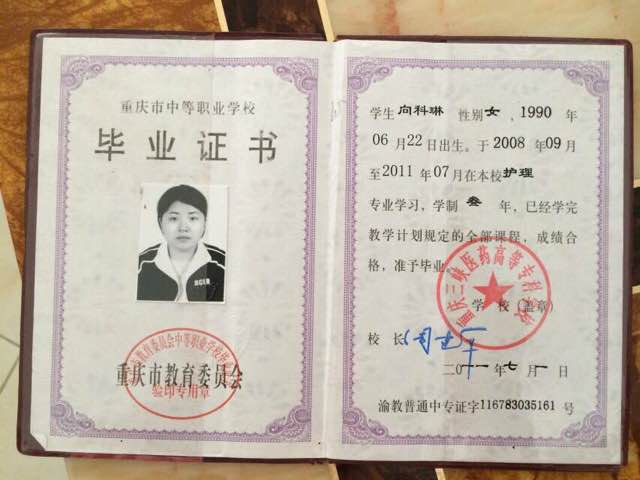 重庆市中等职业学校
毕业证书
重庆市教育委员会中等职业学校毕业证书
重庆市教育委员会
验印专用章
学生向科琳 性别女，1990年
06月22日出生。于2008年09月
至2011年07月在本校护理
专业学习，学制叁年，已经学完
教学计划规定的全部课程，成绩合
格，准予毕业。
重庆三峡医药高等专科学校
学校（盖章）
校长
二〇一一年七月一日
渝教普通中专证字116783035161号